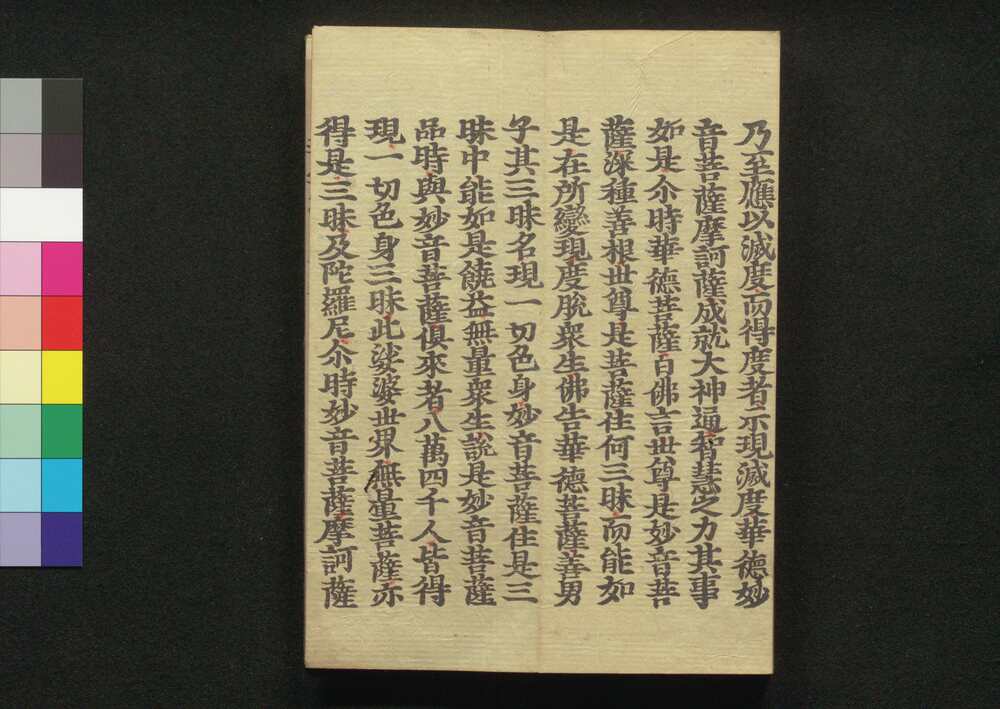 乃至應以滅度而得度者示現滅度華德妙
音菩薩摩訶薩成就大神通智慧之力其事
如是尒時華德菩薩白佛言世尊是妙音菩
薩深種善根世尊是菩薩住何三昧而能如
是在所變現度脫衆生佛告華德菩薩善男
子其三昧名現一切色身妙音菩薩住是三
昧中能如是饒益無量衆生説是妙音菩薩
品時與妙音菩薩俱來者八萬四千人皆得
現一切色身三昧此娑婆世界無量菩薩亦
得是三昧及陀羅尼尒時妙音菩薩摩訶薩